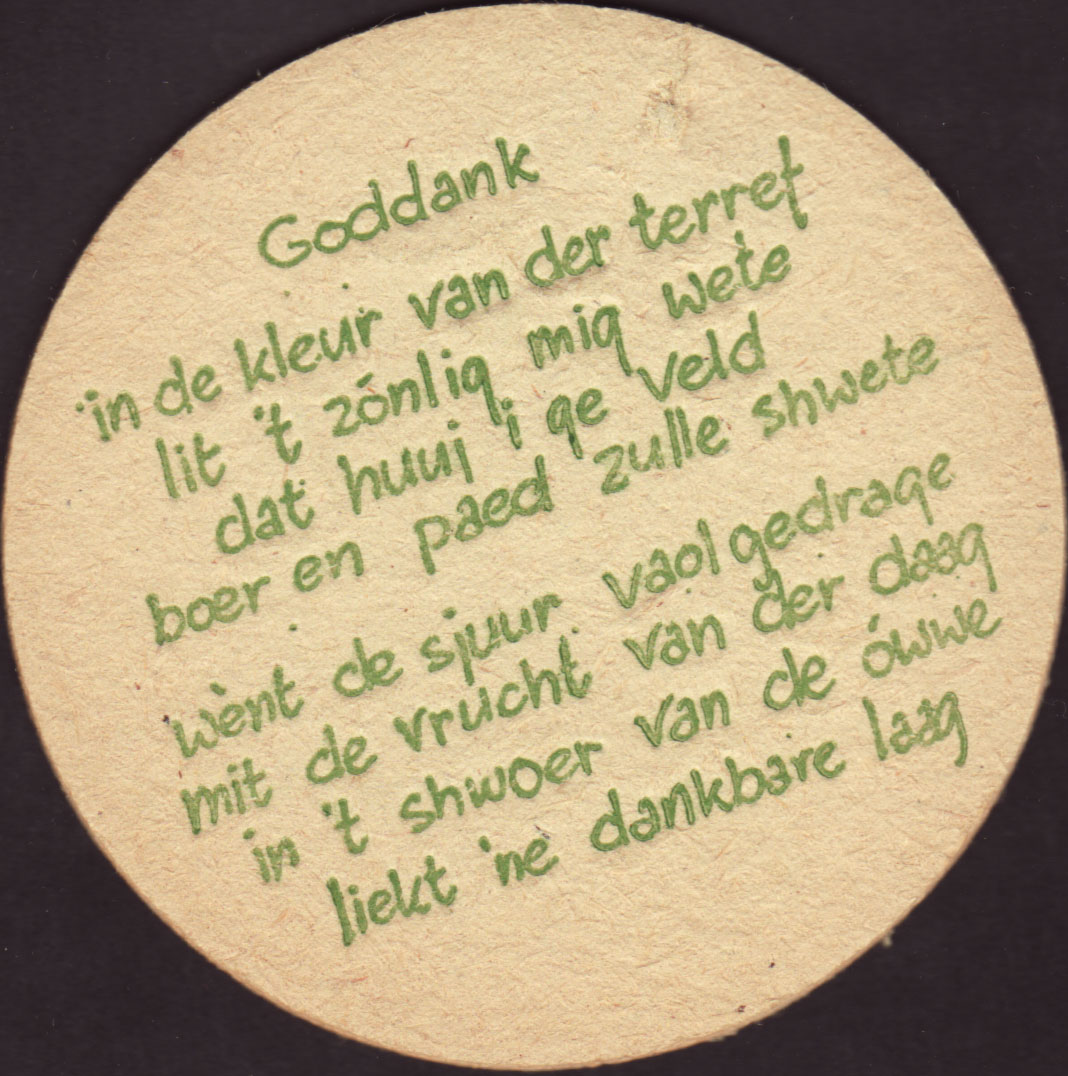 Goddank
in de kleur van der terref
lit 't zónlig mig wete
dat huuj i ge veld
boer en paed zulle shwete
wènt de sjuur vaol gedrage
mit de vrucht van der daag
in 't shwoer van de ówwe
liekt 'ne dankbare laag